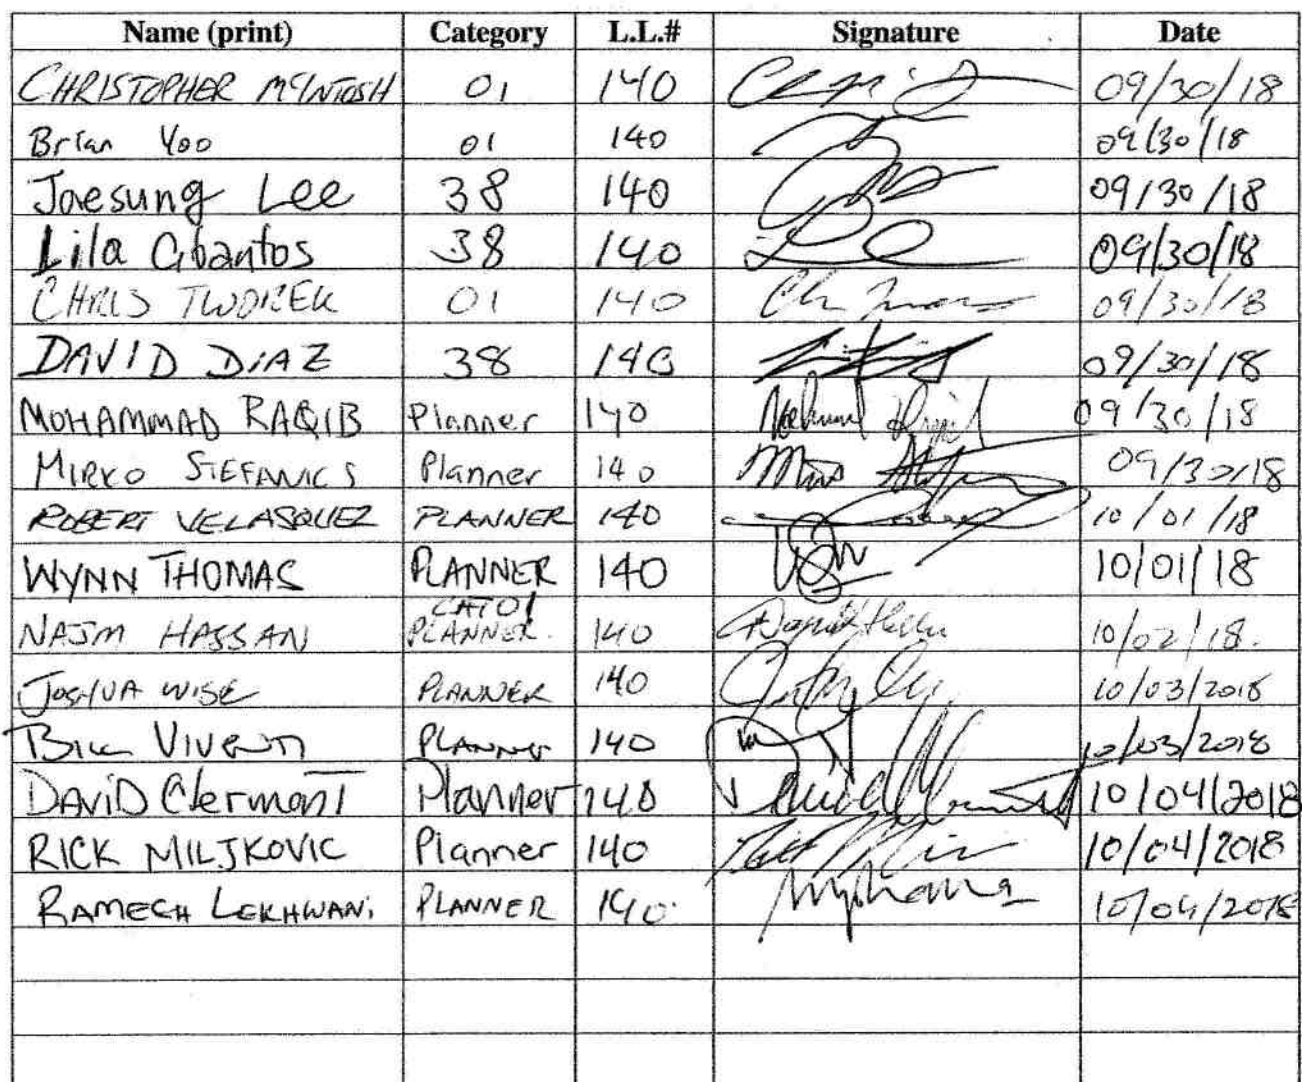 Name (print) Category L.L.# Signature Date
CHRISTOPHER McINTOSH 01 140 09/30/18
Brian Yoo 01 140 09/30/18
Jaesung Lee 38 140 09/30/18
Lila Cibantos 38 140 09/30/18
CHRIS TWOREK 01 140 09/30/18
DAVID DiAZ 38 140 09/30/18
MOHAMMAD RAQIB Planner 140 09/30/18
MIRKO STEFANICS Planner 140 09/30/18
ROBERT VELASQUEZ PLANNER 140 10/01/18
WYNN THOMAS PLANNER 140 10/01/18
CAT01
NAJM HASSAN PLANNER. 140 10/02/18.
JOSHUA WISE PLANNER 140 10/03/2018
Bill VIVENTI PLANNER 140 10/03/2018
DAViD Clermont Planner 140 David Clermont 10/04/2018
RICK MILJKOVIC Planner 140 10/04/2018
RAMECH LEKHWANi PLANNER 140 10/04/2018